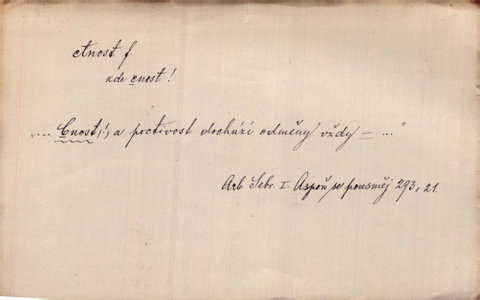 ctnost f.
zde cnost!
„.... Cnost(!) a poctivost dochází odměny vždy = ..."
Arb. Sebr. I. Aspoň se pousměj 293, 21.